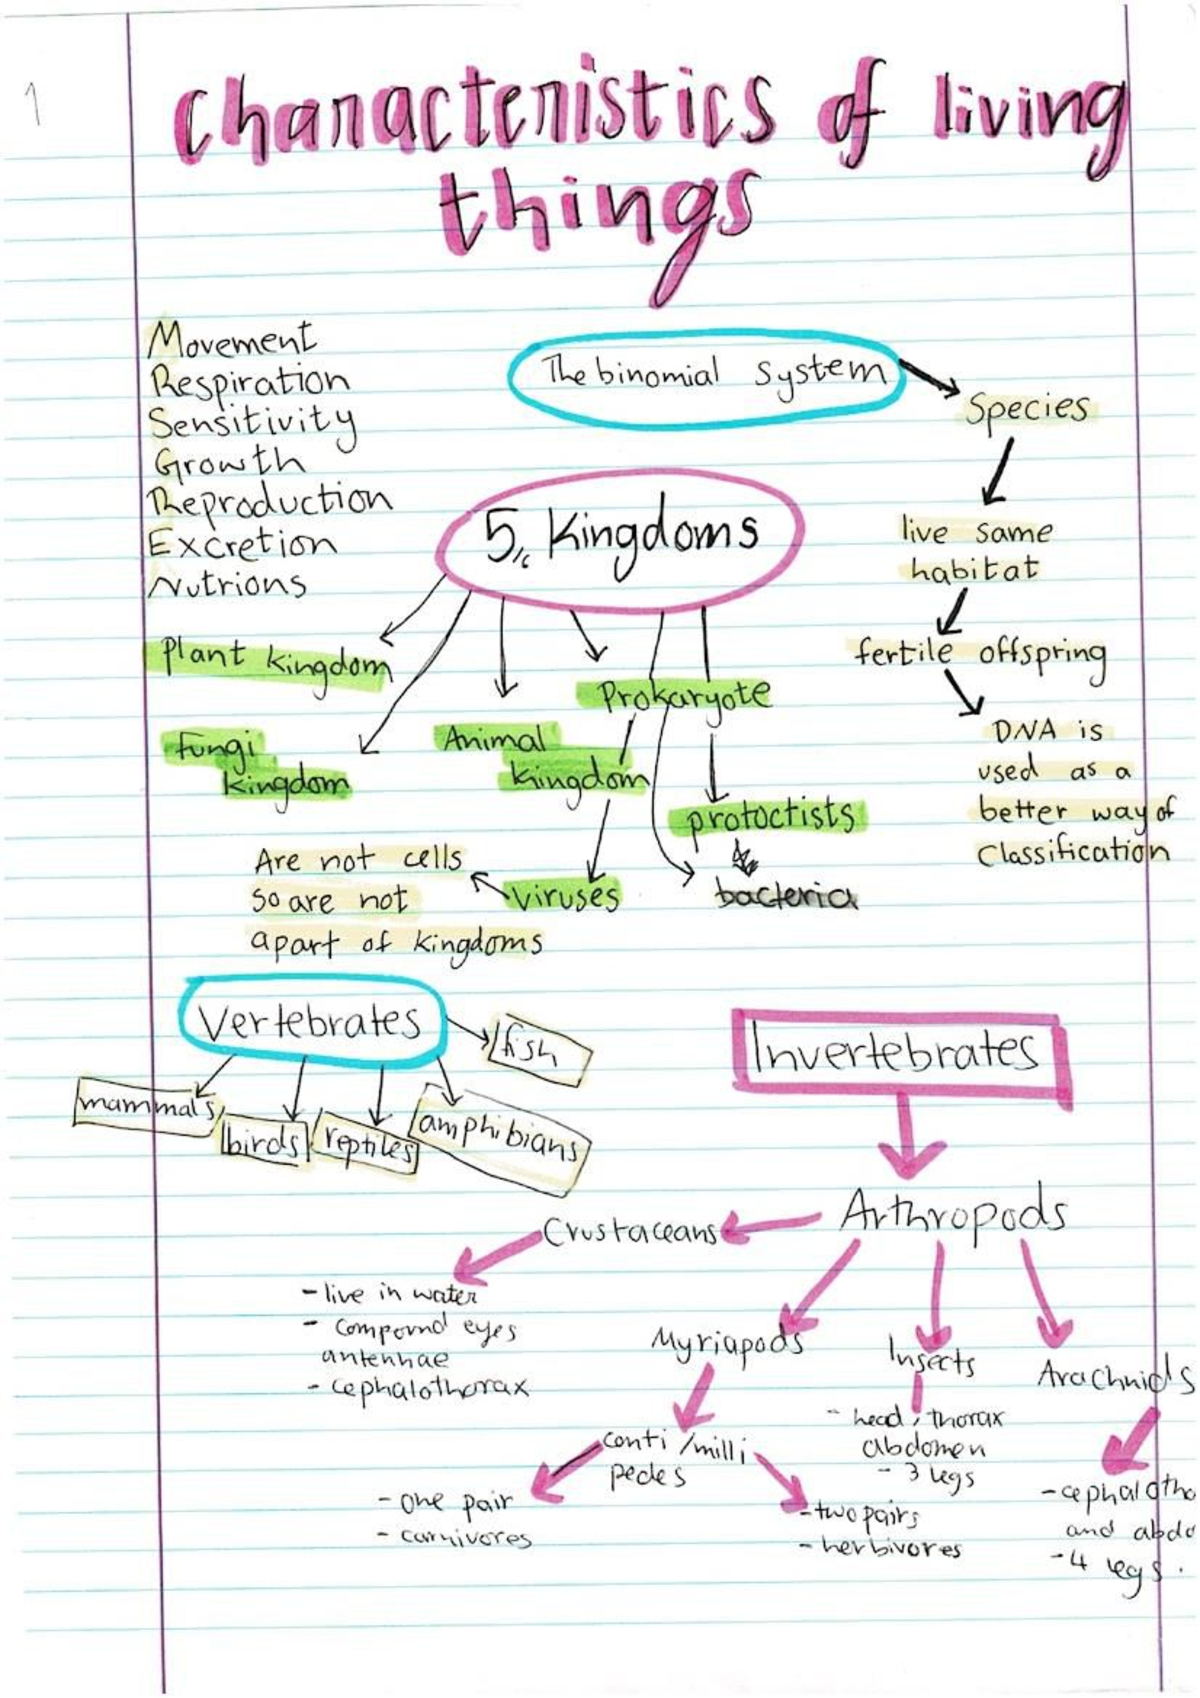 1
Characteristics of living
things
Movement
Respiration
Sensitivity
Growth
Reproduction
Excretion
Nutrions
The binomial system
Species
live same
habitat
fertile offspring
DNA is
used as a
better way of
Classification
5 Kingdoms
Plant kingdom
Fungi
kingdom
Animal
kingdom
Prokaryote
protoctists
bacteria
viruses
Are not cells
so are not
apart of kingdoms
Vertebrates
fish
mammals
birds
reptiles
amphibians
Invertebrates
Arthropods
Crustaceans
- live in water
- compound eyes
antennae
- cephalothorax
Myriapods
centi/milli
pedes
- one pair
- carnivores
- two pairs
- herbivores
Insects
- head, thorax
abdomen
- 3 legs
Arachnids
- cephalotho
and abdo
- 4 legs.